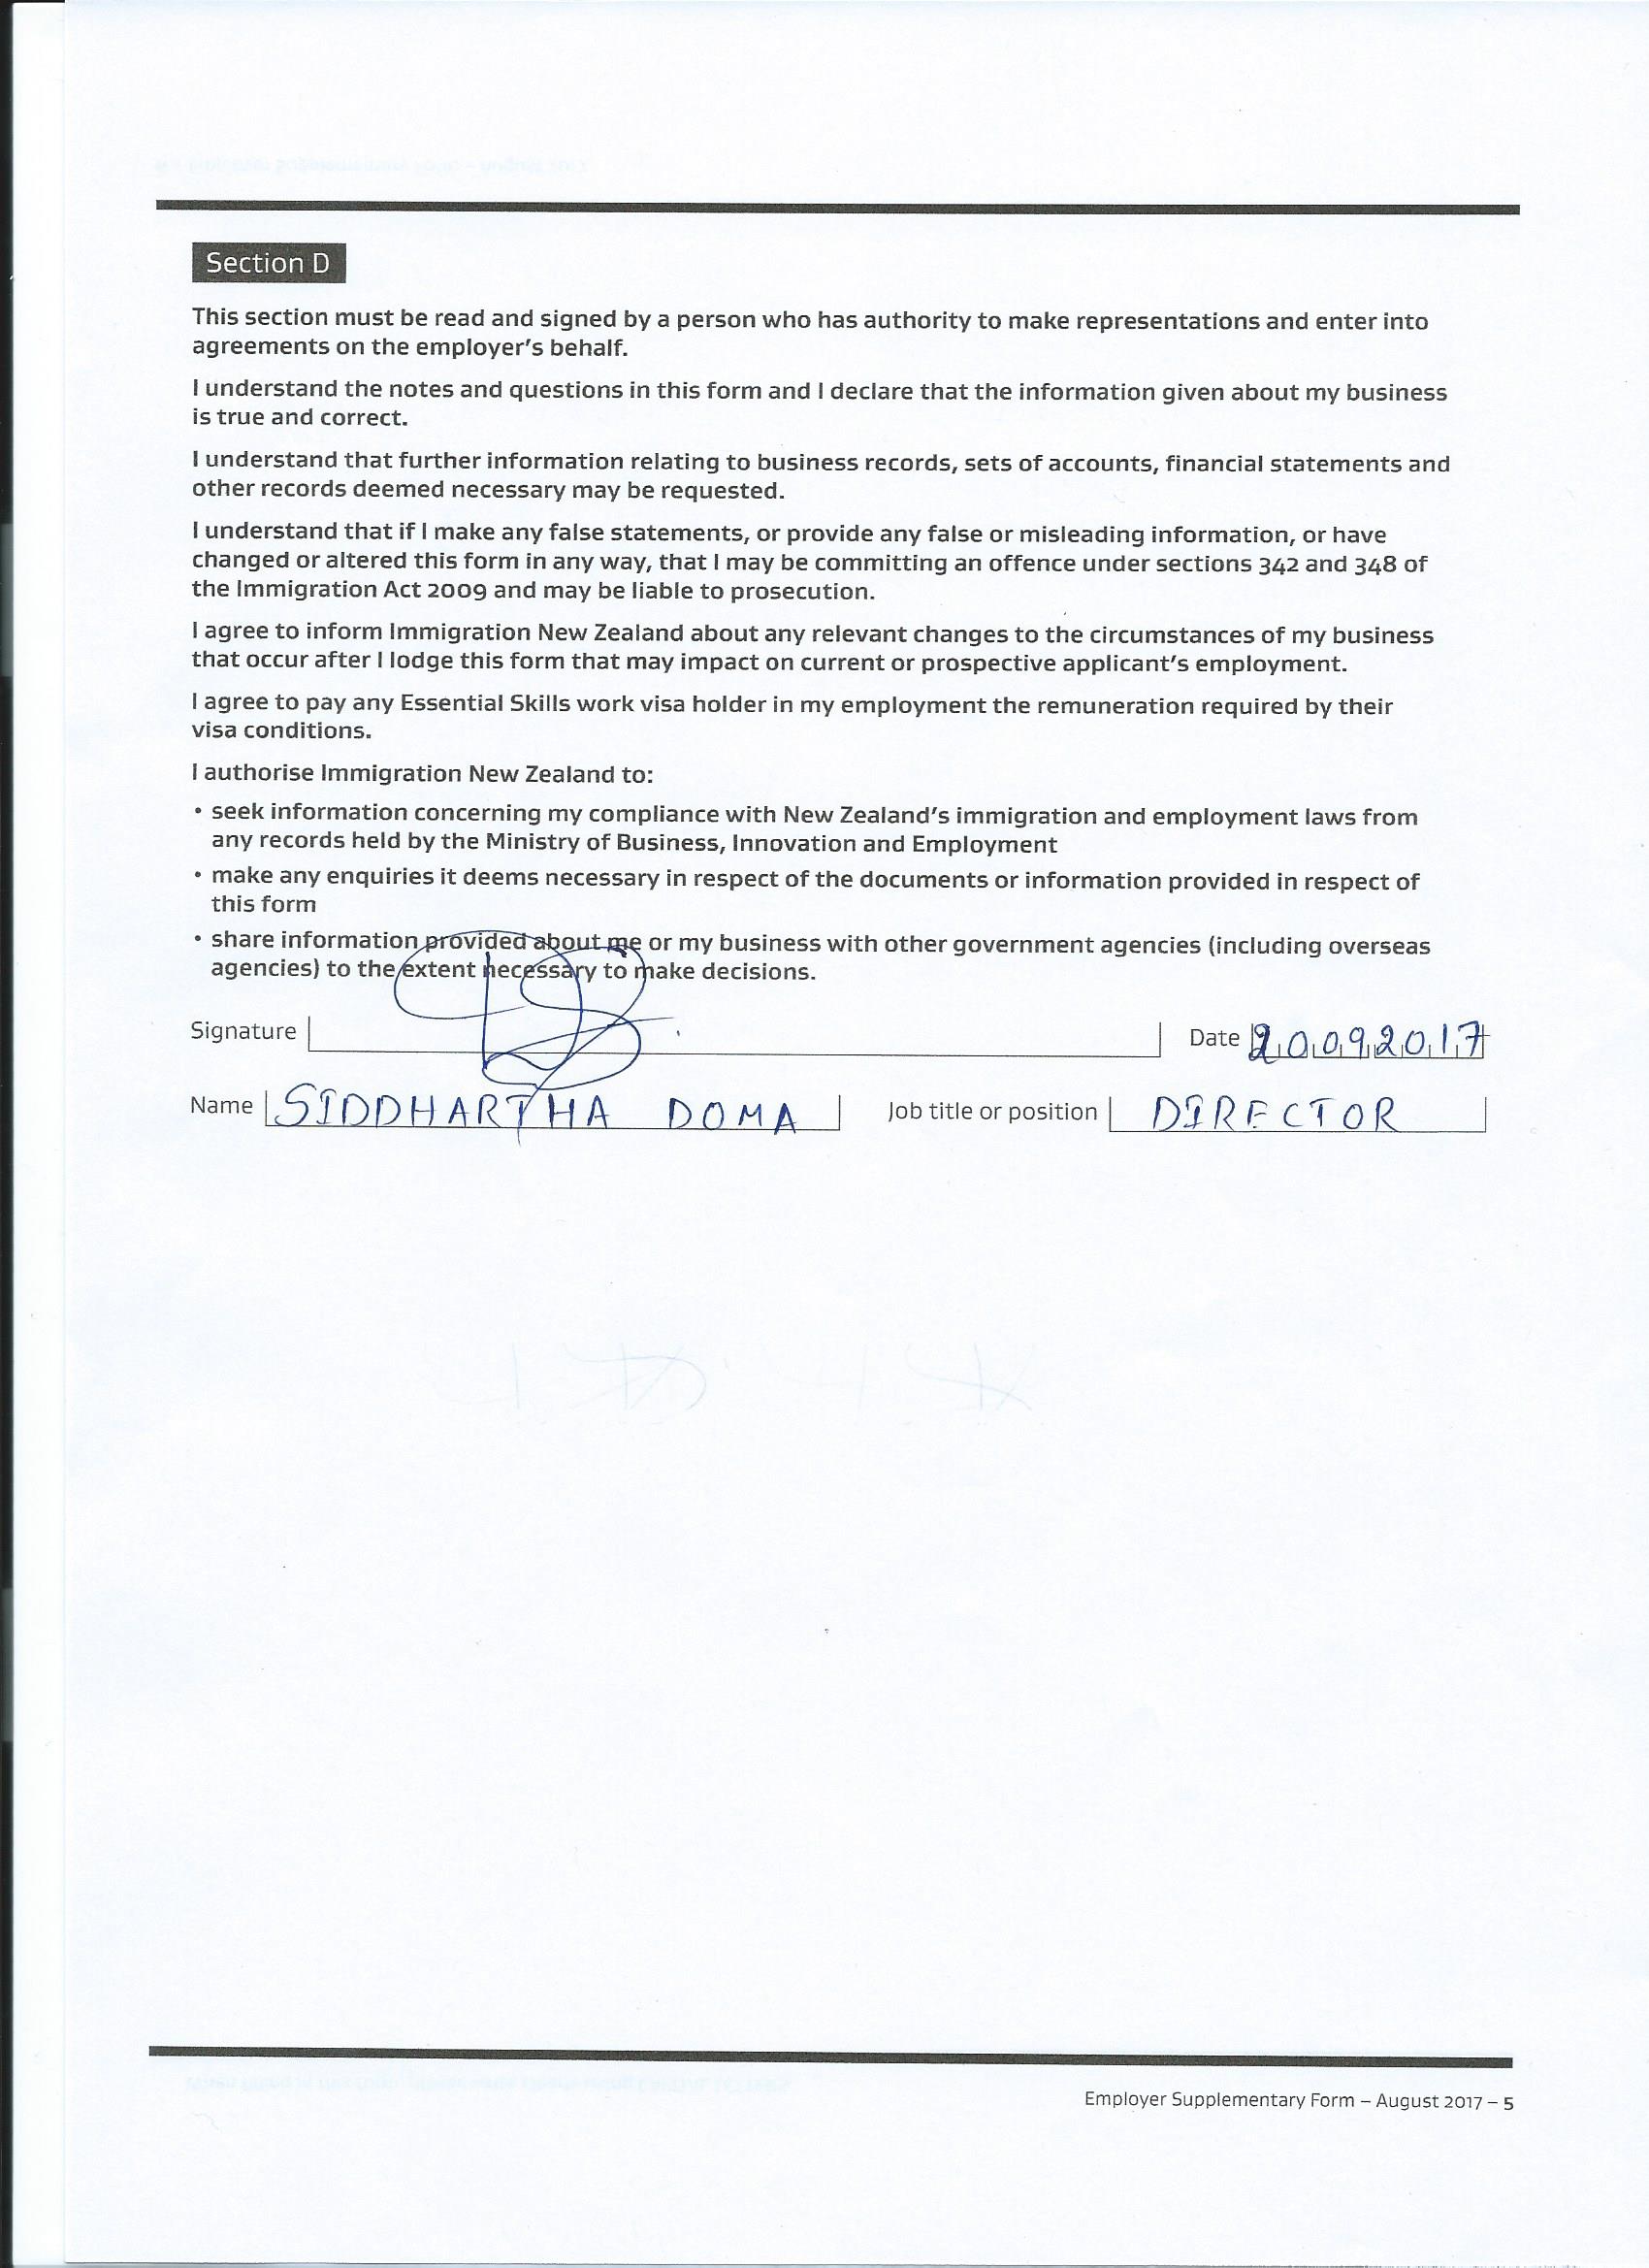 Section D
This section must be read and signed by a person who has authority to make representations and enter into
agreements on the employer's behalf.
I understand the notes and questions in this form and I declare that the information given about my business
is true and correct.
I understand that further information relating to business records, sets of accounts, financial statements and
other records deemed necessary may be requested.
I understand that if I make any false statements, or provide any false or misleading information, or have
changed or altered this form in any way, that I may be committing an offence under sections 342 and 348 of
the Immigration Act 2009 and may be liable to prosecution.
I agree to inform Immigration New Zealand about any relevant changes to the circumstances of my business
that occur after I lodge this form that may impact on current or prospective applicant's employment.
I agree to pay any Essential Skills work visa holder in my employment the remuneration required by their
visa conditions.
I authorise Immigration New Zealand to:
• seek information concerning my compliance with New Zealand's immigration and employment laws from
any records held by the Ministry of Business, Innovation and Employment
• make any enquiries it deems necessary in respect of the documents or information provided in respect of
this form
• share information provided about me or my business with other government agencies (including overseas
agencies) to the extent necessary to make decisions.
Signature Date 20092017
Name SIDDHARTHA DOMA Job title or position DIRECTOR
Employer Supplementary Form – August 2017 – 5